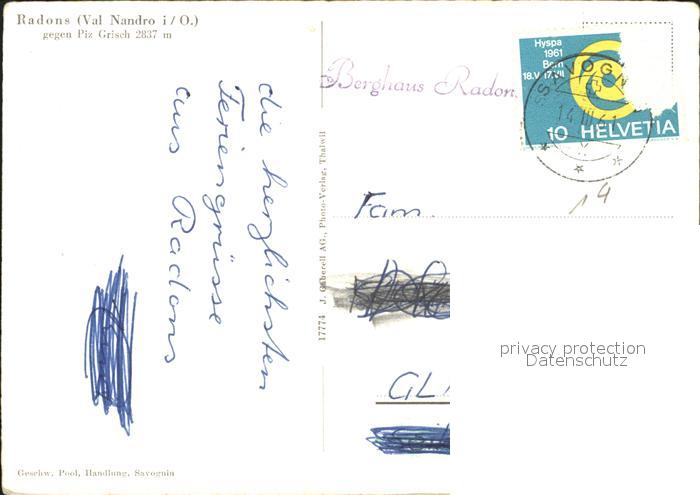 Radons (Val Nandro i/O.)
gegen Piz Grisch 2837 m
die herzlichsten
Feriengrüsse
aus Radons
Geschw. Pool, Handlung, Savognin
17774 J. Gaberell AG., Photo-Verlag, Thalwil
Berghaus Radons
Hyspa
1961
Bern
18.V. 17.VII
10 HELVETIA
SAVOGN
14 III 61
14
Fam.
GL
privacy protection
Datenschutz